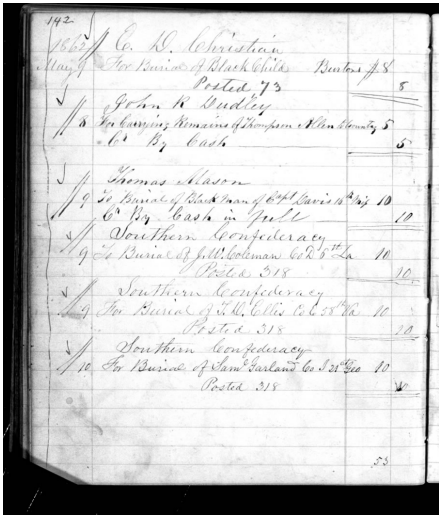 142
1862 E. D. Christian
May 9 For Burial of Black Child Burtons $8
Posted 73 8
John R Dudley
8 For Carrying Remains of Thompson Allen County 5
" Cr By Cash 5
Thomas Mason
9 To Burial of Black Man of Capt Davis 10
Cr By Cash in full 10
Southern Confederacy
9 To Burial of J. W. Coleman Co D La 10
Posted 318 10
Southern Confederacy
9 For Burial of T. W. Ellis Co C 38th Va 10
Posted 318 10
Southern Confederacy
10 For Burial of Saml Garland Co I Geo 10
Posted 318 10
53